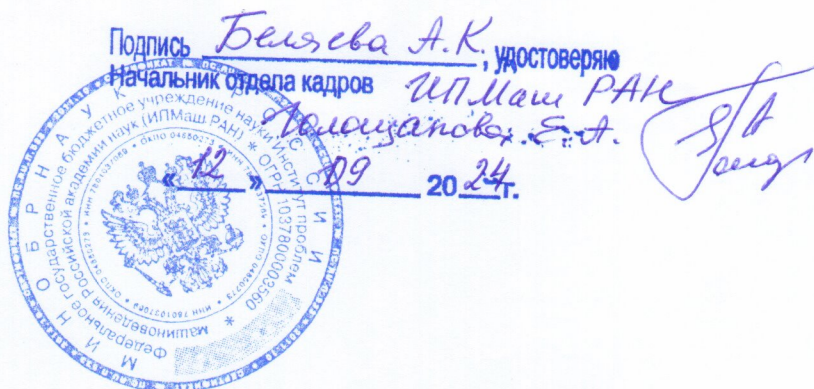 Подпись Беляева А.К., удостоверяю
Начальник отдела кадров ИПМаш РАН
Е.А.
«12» 09 2024г.
МИНОБРНАУКИ РОССИИ
Федеральное государственное бюджетное учреждение науки Институт проблем машиноведения Российской академии наук (ИПМаш РАН) * ОГРН 1037800003560 *